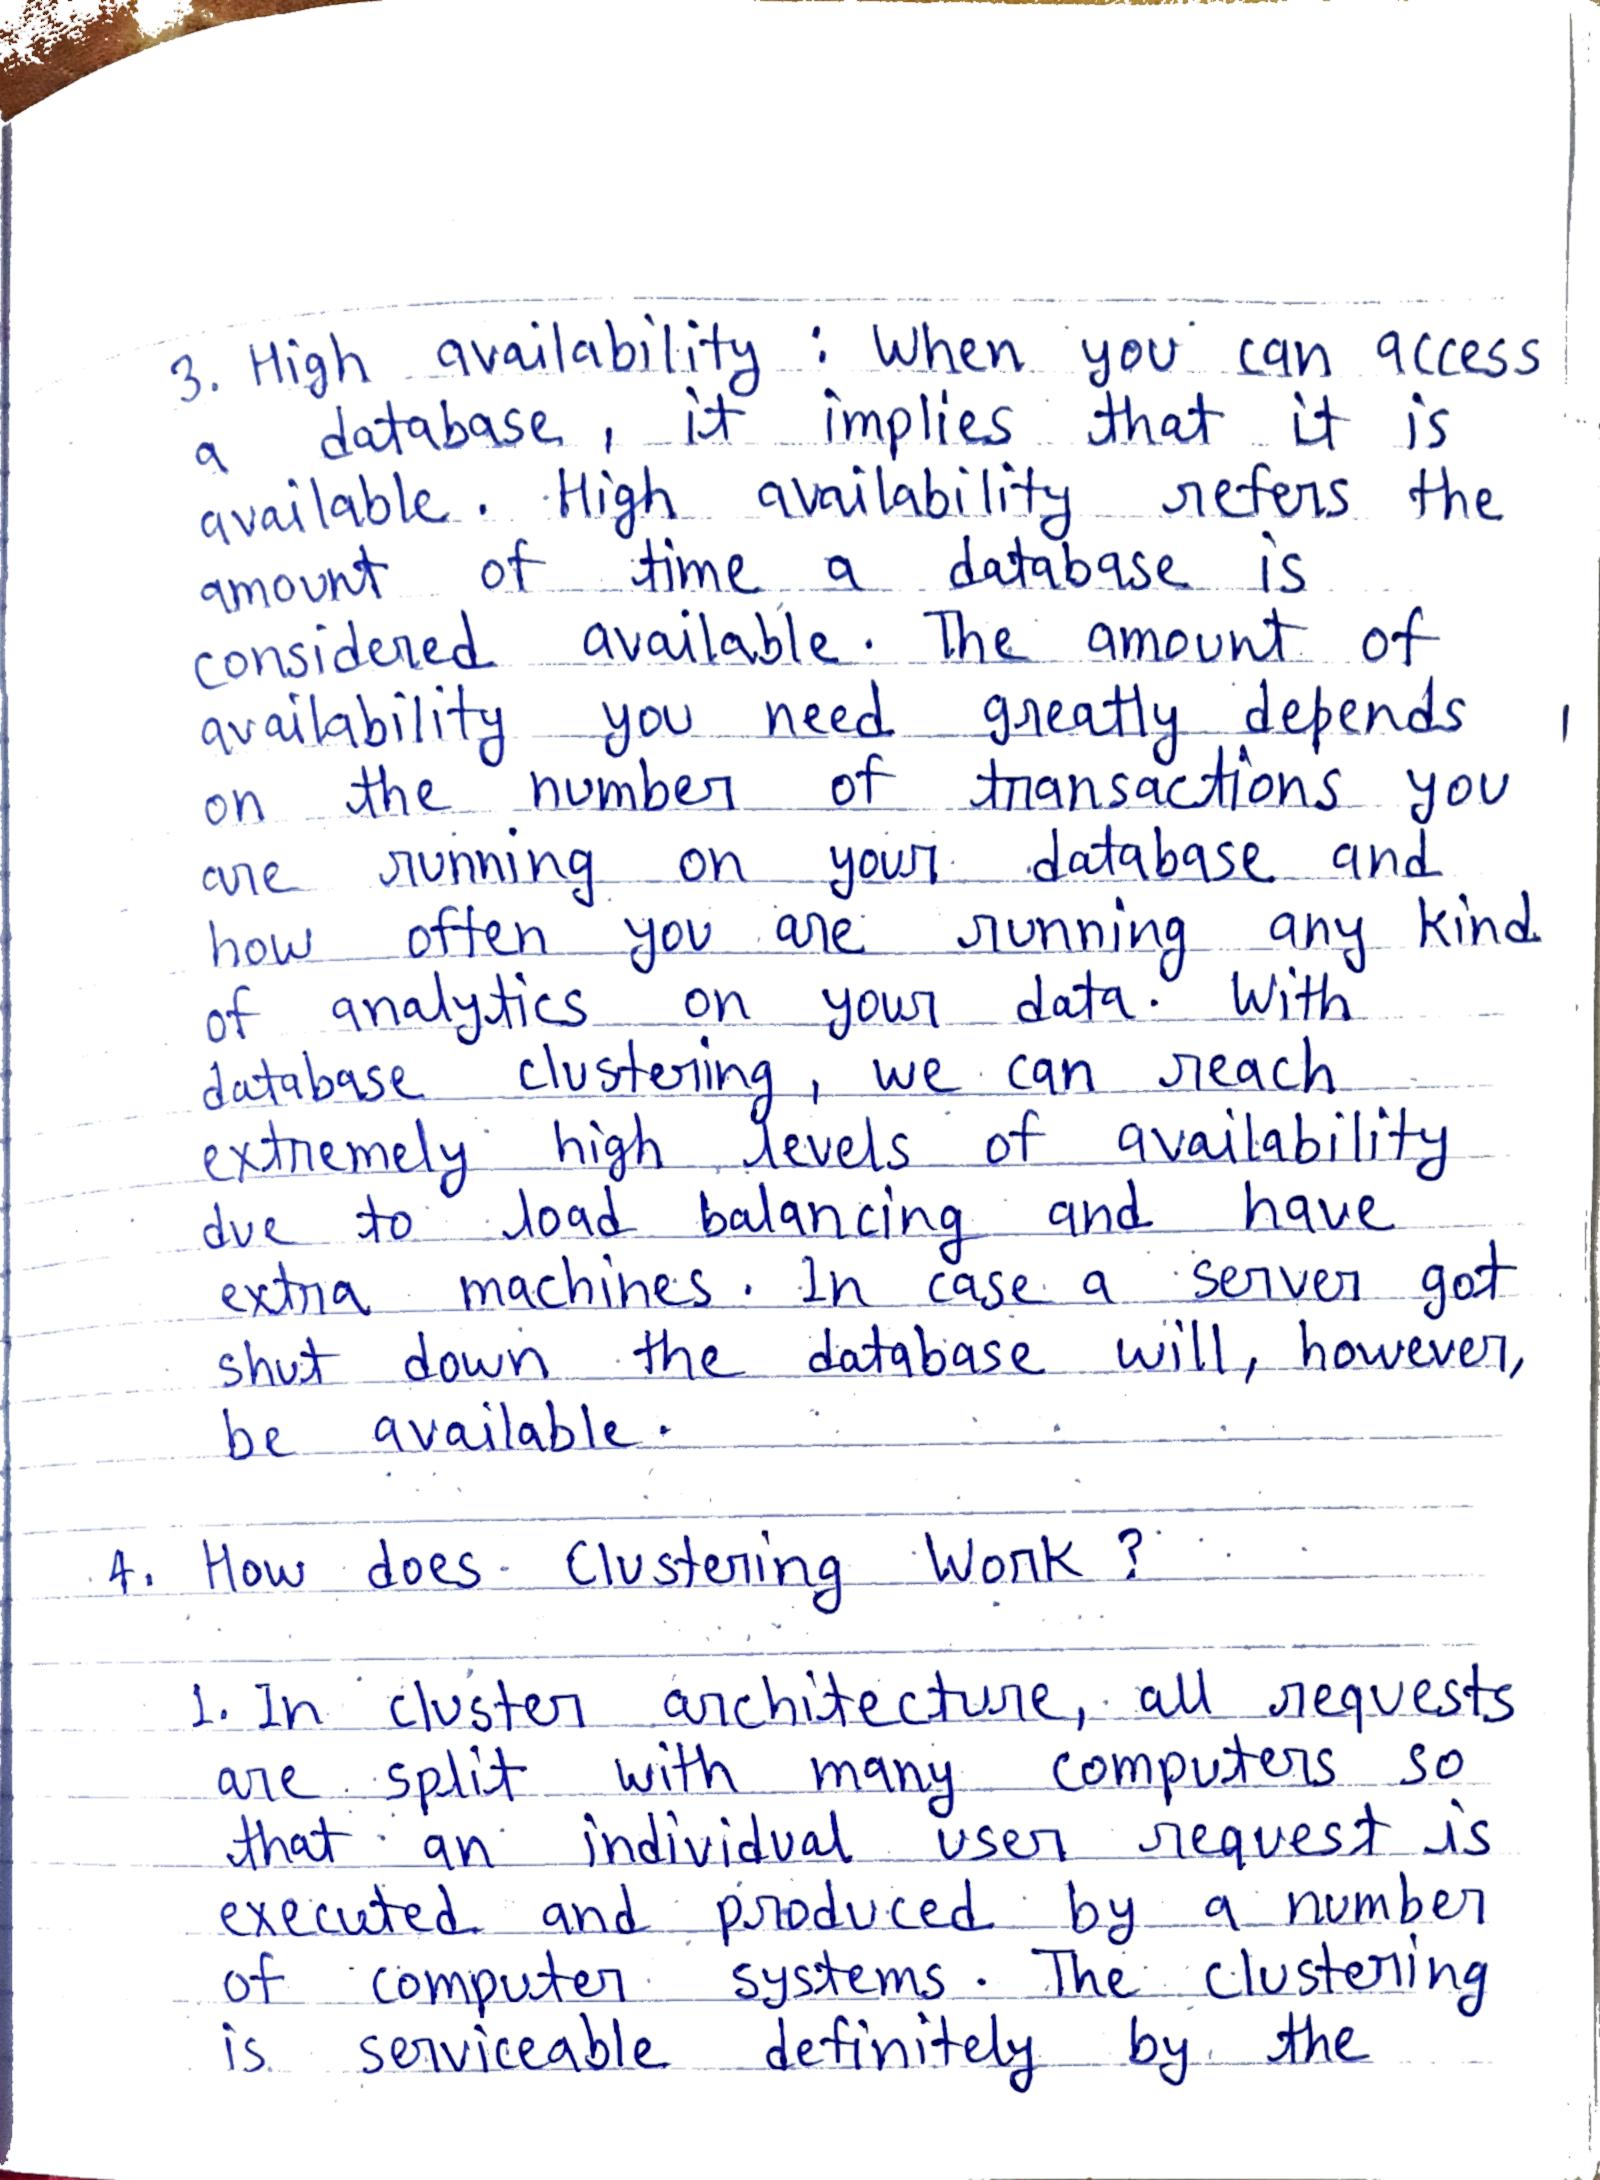 3. High availability : When you can access
a database, it implies that it is
available. High availability refers the
amount of time a database is
considered available. The amount of
availability you need greatly depends
on the number of transactions you
are running on your database and
how often you are running any kind
of analytics on your data. With
database clustering, we can reach
extremely high levels of availability
due to load balancing and have
extra machines. In case a server got
shut down the database will, however,
be available.
4. How does Clustering Work ?
1. In cluster architecture, all requests
are split with many computers so
that an individual user request is
executed and produced by a number
of computer systems. The clustering
is serviceable definitely by the